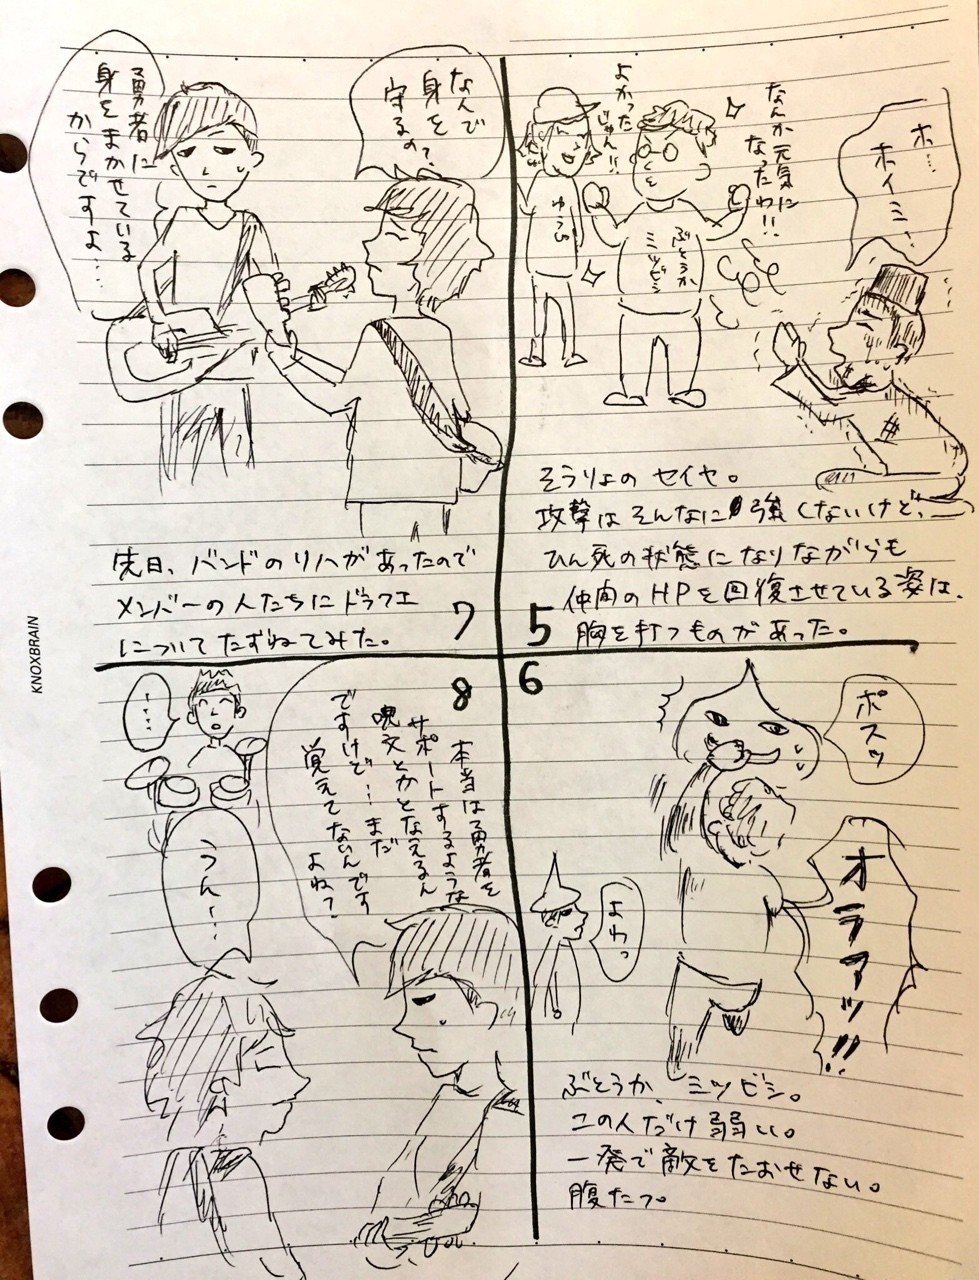 なんか元気に
なったわ!!
よかった
じゃん!!
ゆうび
ぶとうか
ミツビシ
ホ…
ホイミ…
そうりょの セイヤ。
攻撃はそんなに強くないけど、
ひん死の状態になりながらも
仲間のHPを回復させている姿は、
胸を打つものがあった。
5
6
ポスッ
オラァッ!!
よわっ
ぶとうか、ミツビシ。
この人だけ弱い。
一発で敵をたおせない。
腹たつ。
なんで
身を
守るの?
勇者に
身をまかせている
からですよ…
先日、バンドのリハがあったので
メンバーの人たちにドラクエ
についてたずねてみた。
7
8
本当は勇者を
サポートするような
呪文とかとなえるん
ですけど…まだ
覚えてないんです
よね?
……
うん…
KNOXBRAIN